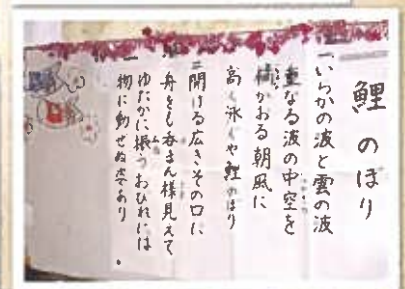 鯉のぼり
一いらかの波と雲の波
重なる波の中空を
橘かおる朝風に
高く泳ぐや鯉のぼり
二開ける広きその口に
舟をも呑まん様見えて
ゆたかに振うおひれには
物に動せぬ姿あり。